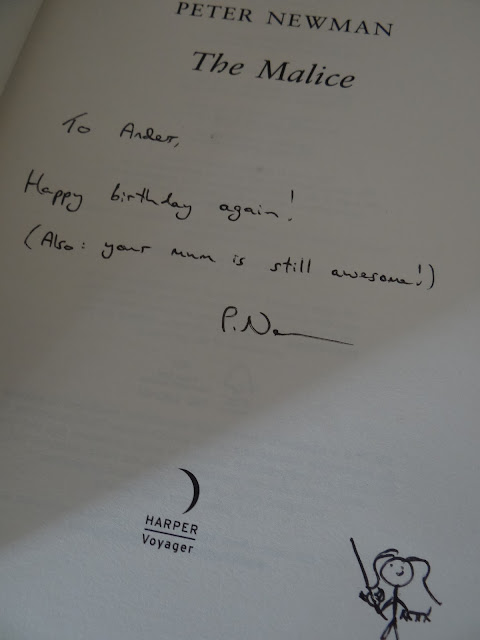 PETER NEWMAN
The Malice
To Ander,
Happy birthday again!
(Also: your mum is still awesome!)
P. Ne
HARPER
Voyager